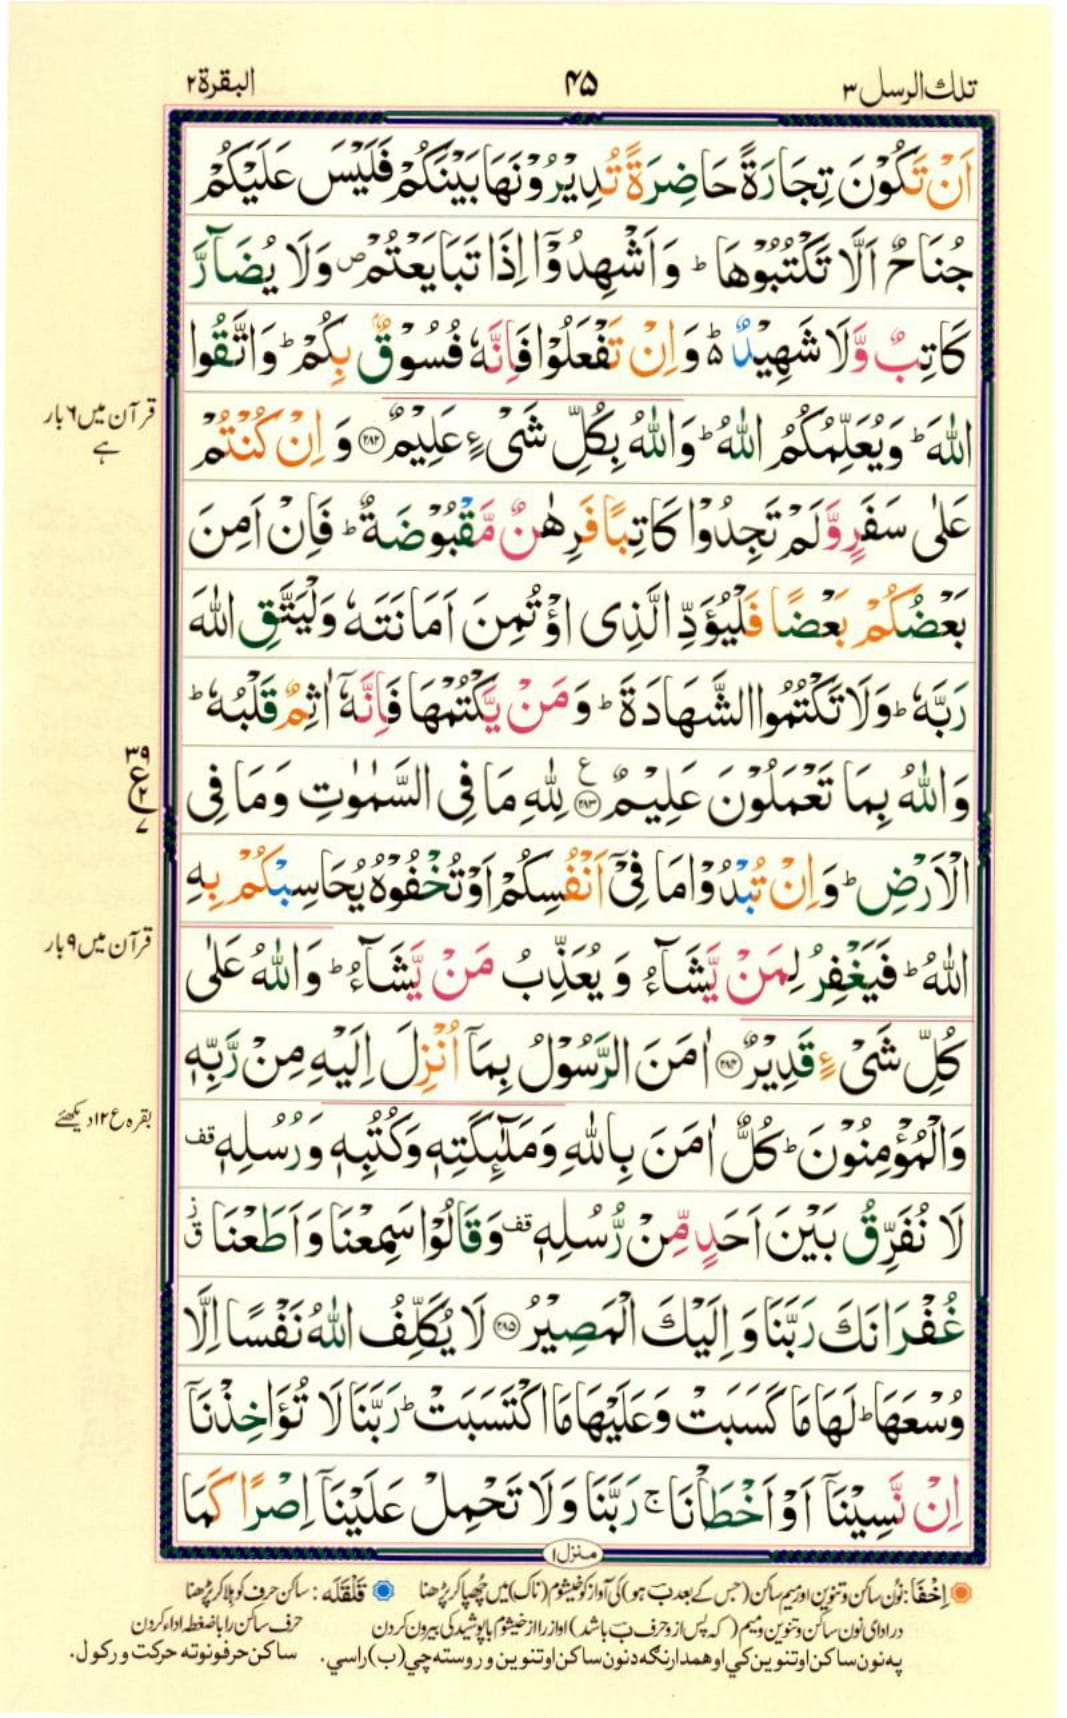 تلك الرسل ۳
۴۵
البقرة ۲
اَنْ تَكُوْنَ تِجَارَةً حَاضِرَةً تُدِيْرُوْنَهَا بَيْنَكُمْ فَلَيْسَ عَلَيْكُمْ
جُنَاحٌ اَلَّا تَكْتُبُوْهَا ؕ وَاَشْهِدُوْۤا اِذَا تَبَايَعْتُمْ ۪ وَلَا يُضَآرَّ
كَاتِبٌ وَّلَا شَهِيْدٌ ؕ۬ وَاِنْ تَفْعَلُوْا فَاِنَّهٗ فُسُوْقٌۢ بِكُمْ ؕ وَاتَّقُوا
اللّٰهَ ؕ وَيُعَلِّمُكُمُ اللّٰهُ ؕ وَاللّٰهُ بِكُلِّ شَيْءٍ عَلِيْمٌ ۝۲۸۲ وَاِنْ كُنْتُمْ
عَلٰى سَفَرٍ وَّلَمْ تَجِدُوْا كَاتِبًا فَرِهٰنٌ مَّقْبُوْضَةٌ ؕ فَاِنْ اَمِنَ
بَعْضُكُمْ بَعْضًا فَلْيُؤَدِّ الَّذِى اؤْتُمِنَ اَمَانَتَهٗ وَلْيَتَّقِ اللّٰهَ
رَبَّهٗ ؕ وَلَا تَكْتُمُوا الشَّهَادَةَ ؕ وَمَنْ يَّكْتُمْهَا فَاِنَّهٗۤ اٰثِمٌ قَلْبُهٗ ؕ
وَاللّٰهُ بِمَا تَعْمَلُوْنَ عَلِيْمٌ ۝۲۸۳ ع لِلّٰهِ مَا فِى السَّمٰوٰتِ وَمَا فِى
الْاَرْضِ ؕ وَاِنْ تُبْدُوْا مَا فِىْۤ اَنْفُسِكُمْ اَوْ تُخْفُوْهُ يُحَاسِبْكُمْ بِهِ
اللّٰهُ ؕ فَيَغْفِرُ لِمَنْ يَّشَآءُ وَيُعَذِّبُ مَنْ يَّشَآءُ ؕ وَاللّٰهُ عَلٰى
كُلِّ شَىْءٍ قَدِيْرٌ ۝۲۸۴ اٰمَنَ الرَّسُوْلُ بِمَاۤ اُنْزِلَ اِلَيْهِ مِنْ رَّبِّهٖ
وَالْمُؤْمِنُوْنَ ؕ كُلٌّ اٰمَنَ بِاللّٰهِ وَمَلٰٓئِكَتِهٖ وَكُتُبِهٖ وَرُسُلِهٖ قف
لَا نُفَرِّقُ بَيْنَ اَحَدٍ مِّنْ رُّسُلِهٖ قف وَقَالُوْا سَمِعْنَا وَاَطَعْنَا ق ز
غُفْرَانَكَ رَبَّنَا وَاِلَيْكَ الْمَصِيْرُ ۝۲۸۵ لَا يُكَلِّفُ اللّٰهُ نَفْسًا اِلَّا
وُسْعَهَا ؕ لَهَا مَا كَسَبَتْ وَعَلَيْهَا مَا اكْتَسَبَتْ ؕ رَبَّنَا لَا تُؤَاخِذْنَاۤ
اِنْ نَّسِيْنَاۤ اَوْ اَخْطَاْنَا ۚ رَبَّنَا وَلَا تَحْمِلْ عَلَيْنَاۤ اِصْرًا كَمَا
منزل ۱
قرآن میں ۶ بار
ہے
۳۹
ع
۲
۷
قرآن میں ۹ بار
بقرہ ع ۱۲ دیکھئے
اِخْفَا: نُون ساکن و تنوین اور میم ساکن (جس کے بعد بَ ہو) کی آواز کو خیشوم (ناک) میں چُھپا کر پڑھنا قَلْقَلَه: ساکن حرف کو ہلا کر پڑھنا
در ادای نون ساکن و تنوین و میم (که پس از و حرف بَ باشد) آواز را از خیشوم با پوشیدگی بیرون کردن حرف ساکن را با ضغطه ادا کردن
په نون ساکن او تنوین کي او همدارنګه د نون ساکن او تنوین وروسته چي (ب) راسي. ساکن حرفونو ته حرکت ورکول.